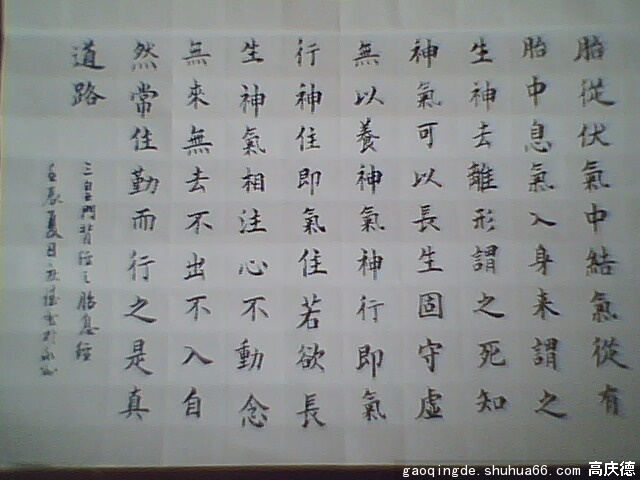 胎從伏氣中結氣從有
胎中息氣入身来謂之
生神去離形謂之死知
神氣可以長生固守虛
無以養神氣神行即氣
行神住即氣住若欲長
生神氣相注心不動念
無來無去不出不入自
然常住勤而行之是真
道路
三皇門背經之胎息經
壬辰夏日
gaoqingde.shuhua66.com 高庆德